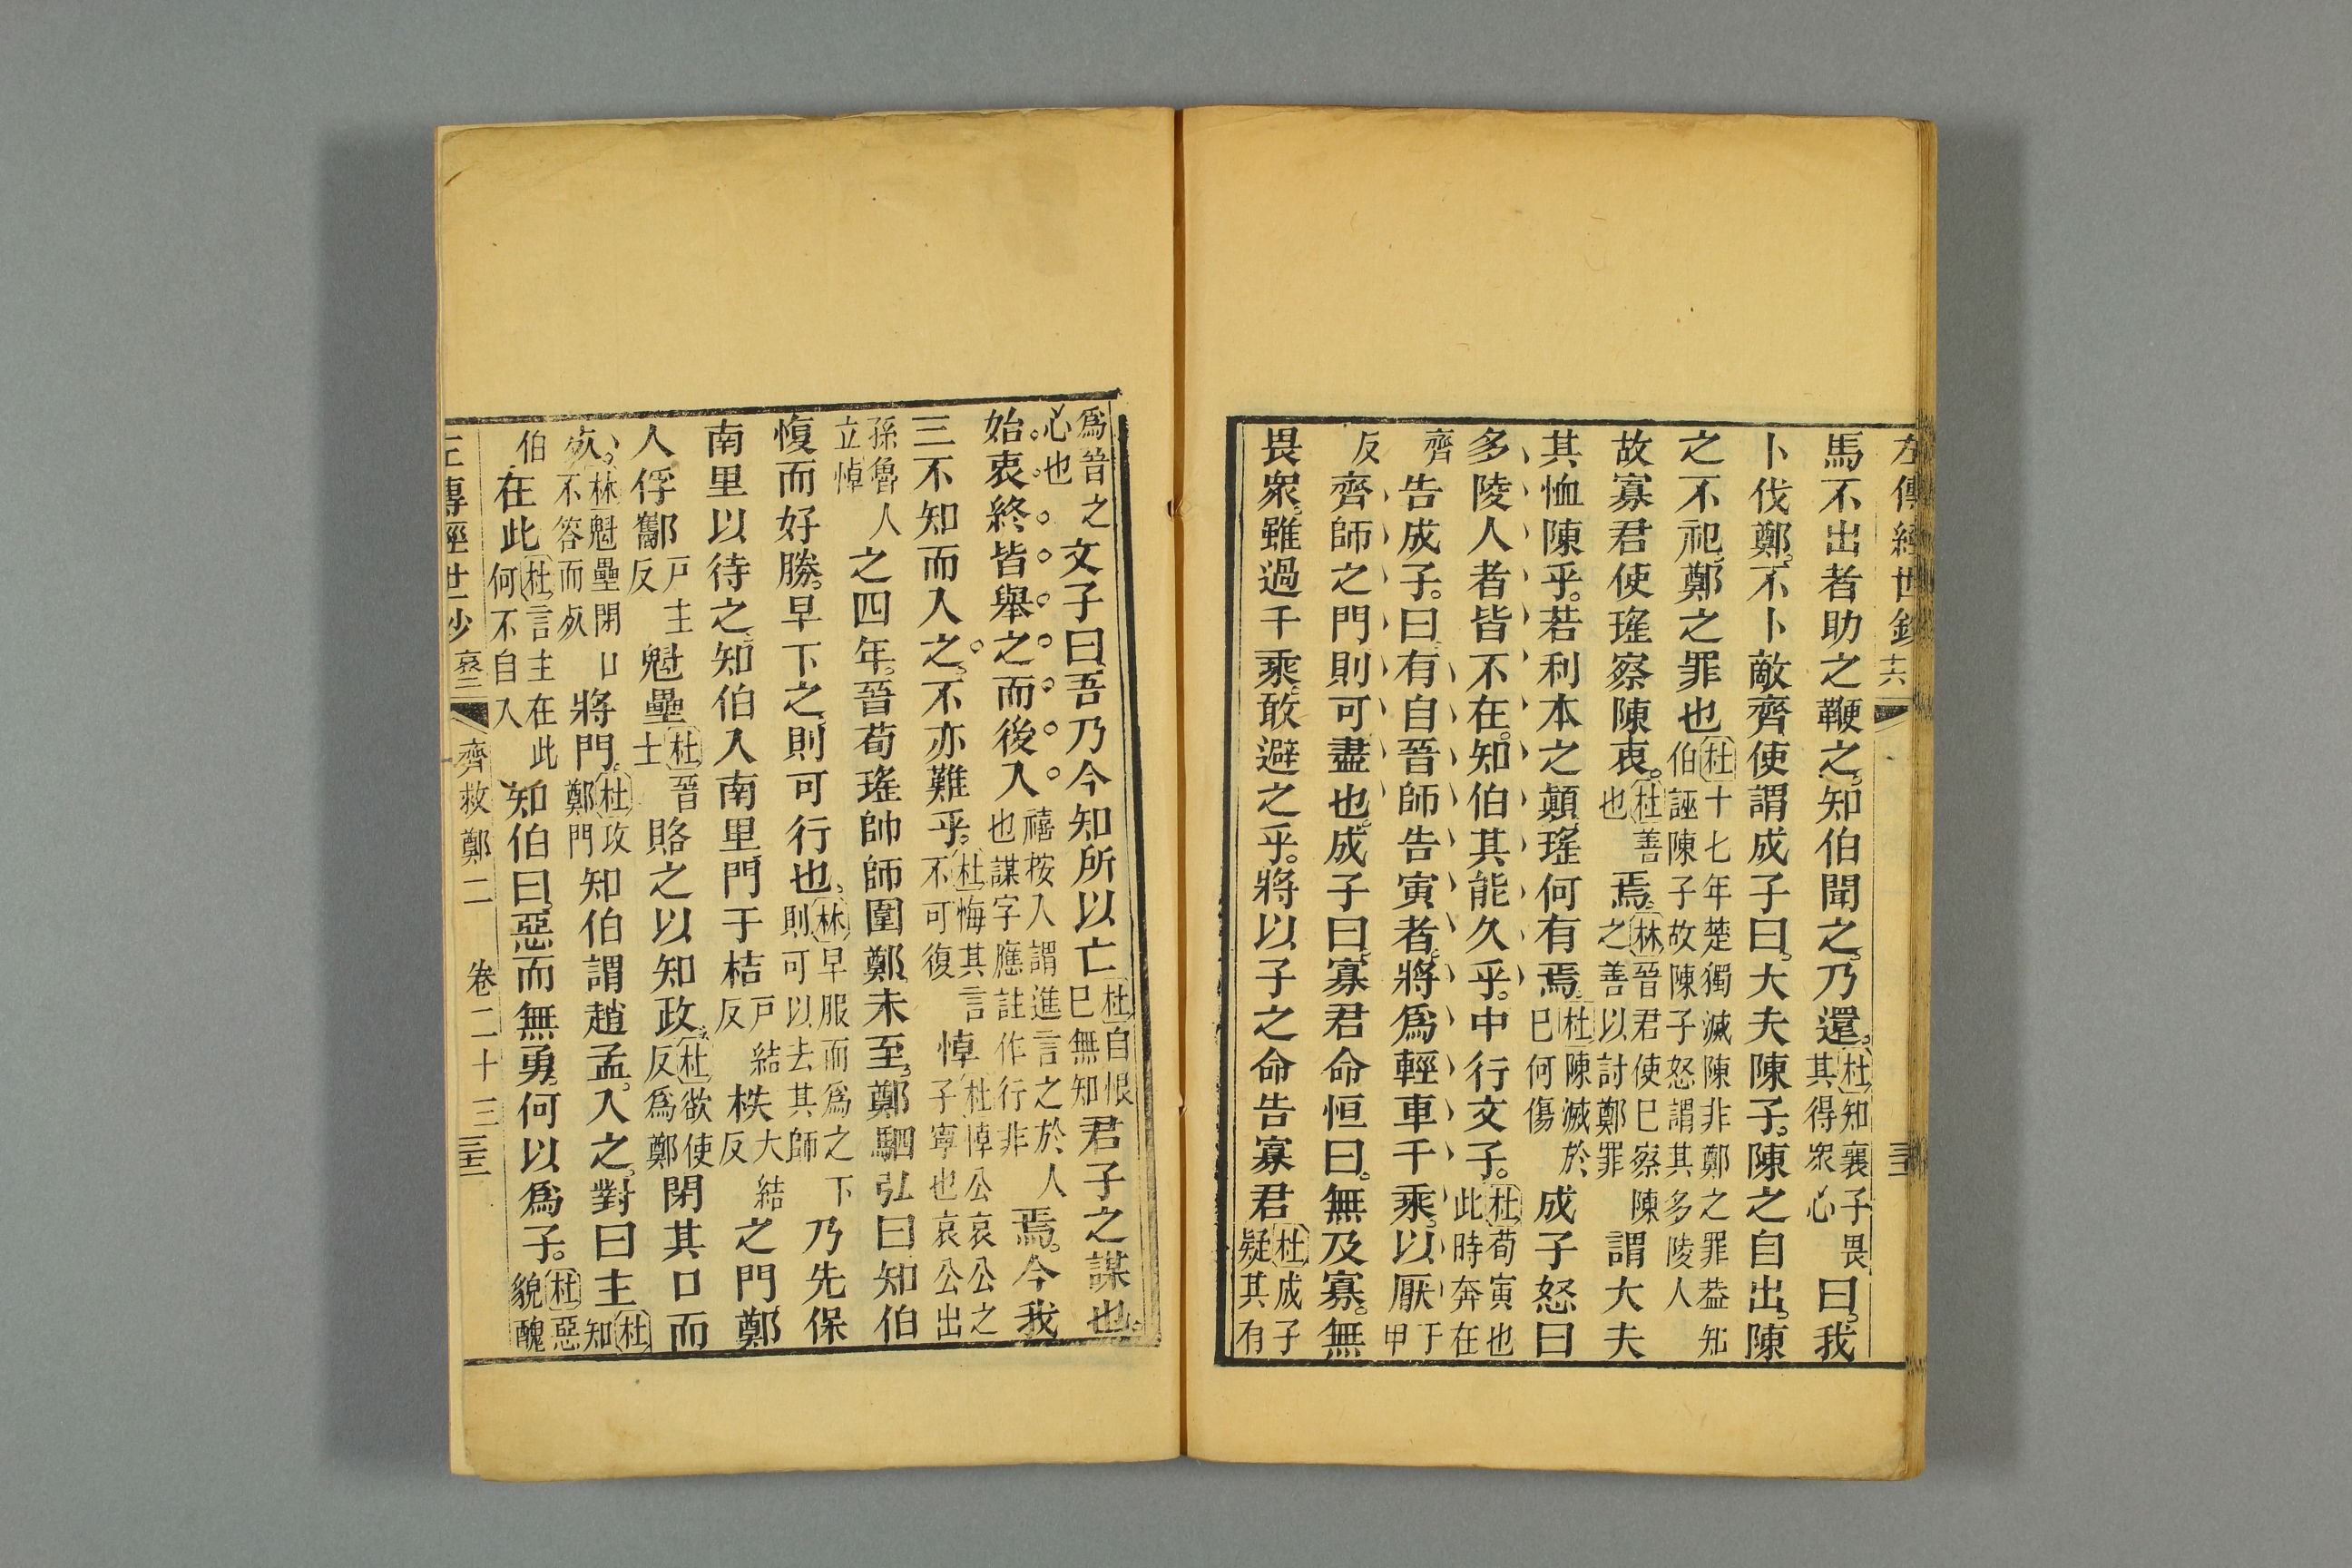 左傳經世鈔 十六 三十三
馬不出者助之鞭之知伯聞之乃還杜知襄子畏其得衆心曰我
卜伐鄭不卜敵齊使謂成子曰大夫陳子陳之自出陳
之不祀鄭之罪也杜十七年楚獨滅陳非鄭之罪葢知伯誣陳子故陳子怒謂其多陵人
故寡君使瑤察陳衷杜善也焉林晉君使巳察陳之善以討鄭罪謂大夫
其恤陳乎若利本之顛瑤何有焉杜陳滅於巳何傷成子怒曰
多陵人者皆不在知伯其能久乎中行文子杜荀寅也此時奔在
齊告成子曰有自晉師告寅者將爲輕車千乘以厭于甲
反齊師之門則可盡也成子曰寡君命恒曰無及寡無
畏衆雖過千乘敢避之乎將以子之命告寡君杜成子疑其有
爲晉之心也文子曰吾乃今知所以亡杜自恨巳無知君子之謀也
始衷終皆舉之而後入禧按入謂進言之於人也謀字應註作行非焉今我
三不知而入之不亦難乎杜悔其言不可復悼杜悼公哀公之子寧也哀公出
孫魯人立悼之四年晉荀瑤帥師圍鄭未至鄭駟弘曰知伯
愎而好勝早下之則可行也林早服而爲之下則可以去其師乃先保
南里以待之知伯入南里門于桔戶結反柣大結反之門鄭
人俘酅戶圭反魁壘杜晉士賂之以知政杜欲使反爲鄭閉其口而
㱙林魁壘閉口不答而㱙將門杜攻鄭門知伯謂趙孟入之對曰主杜知
伯在此杜言主在此何不自入知伯曰惡而無勇何以爲子杜惡貌醜
左傳經世鈔 哀二 齊救鄭二 卷二十三 三十三